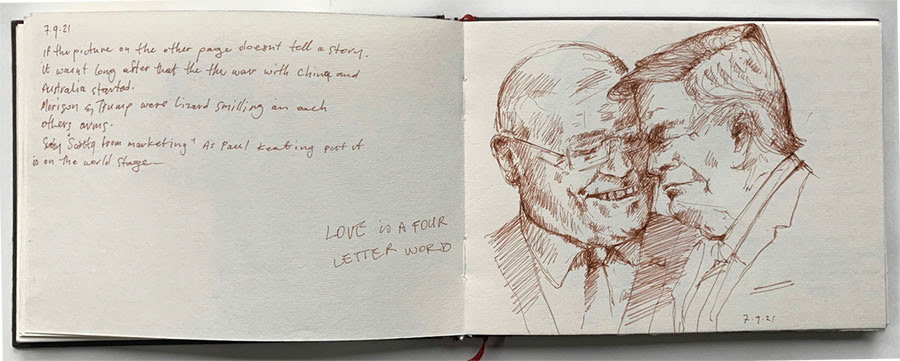 7.9.21
if the picture on the other page doesnt tell a story.
it wasnt long after that the the war with China and
Australia started.
Morison & Trump were lizard smilling in each
others arms.
'Scotty from marketing' As Paul Keating put it
is on the world stage
LOVE is A FOUR
LETTER WORD
7.9.21